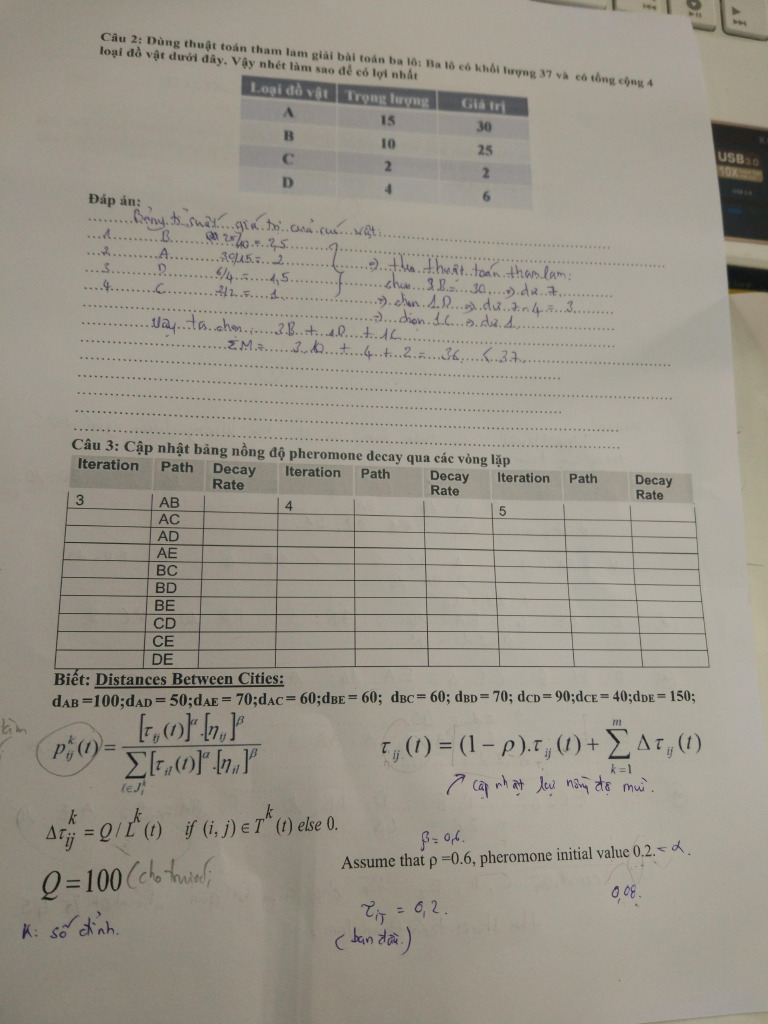 Câu 2: Dùng thuật toán tham lam giải bài toán ba lô: Ba lô có khối lượng 37 và có tổng cộng 4
loại đồ vật dưới đây. Vậy nhét làm sao để có lợi nhất
Loại đồ vật Trọng lượng Giá trị
A 15 30
B 10 25
C 2 2
D 4 6
Đáp án:
Bảng tỉ suất giá trị của các vật:
1 B 25/10 = 2,5
2 A 30/15 = 2 => theo thuật toán tham lam:
3 D 6/4 = 1,5 chọn 3B = 30 => dư 7
4 C 2/2 = 1 => chọn 1D => dư 7-4 = 3
=> chọn 1C => dư 1
Vậy ta chọn 3B + 1D + 1C
ΣM = 3.10 + 4 + 2 = 36 < 37
Câu 3: Cập nhật bảng nồng độ pheromone decay qua các vòng lặp
Iteration Path Decay Rate Iteration Path Decay Rate Iteration Path Decay Rate
3 AB 4 5
AC
AD
AE
BC
BD
BE
CD
CE
DE
Biết: Distances Between Cities:
dAB =100;dAD = 50;dAE = 70;dAC = 60;dBE = 60; dBC = 60; dBD = 70; dCD = 90;dCE = 40;dDE = 150;
p_ij^k(t) = [τ_ij(t)]^α.[η_ij]^β / Σ_{l∈J_i^k} [τ_il(t)]^α.[η_il]^β
τ_ij(t) = (1 − ρ).τ_ij(t) + Σ_{k=1}^{m} Δτ_ij(t)
cập nhật lại nồng độ mùi.
Δτ_ij^k = Q / L^k(t) if (i, j) ∈ T^k(t) else 0.
β = 0,6.
Assume that ρ =0.6, pheromone initial value 0.2. = α.
Q = 100
0,08.
τ_ij = 0,2.
(ban đầu)
K: số đỉnh.